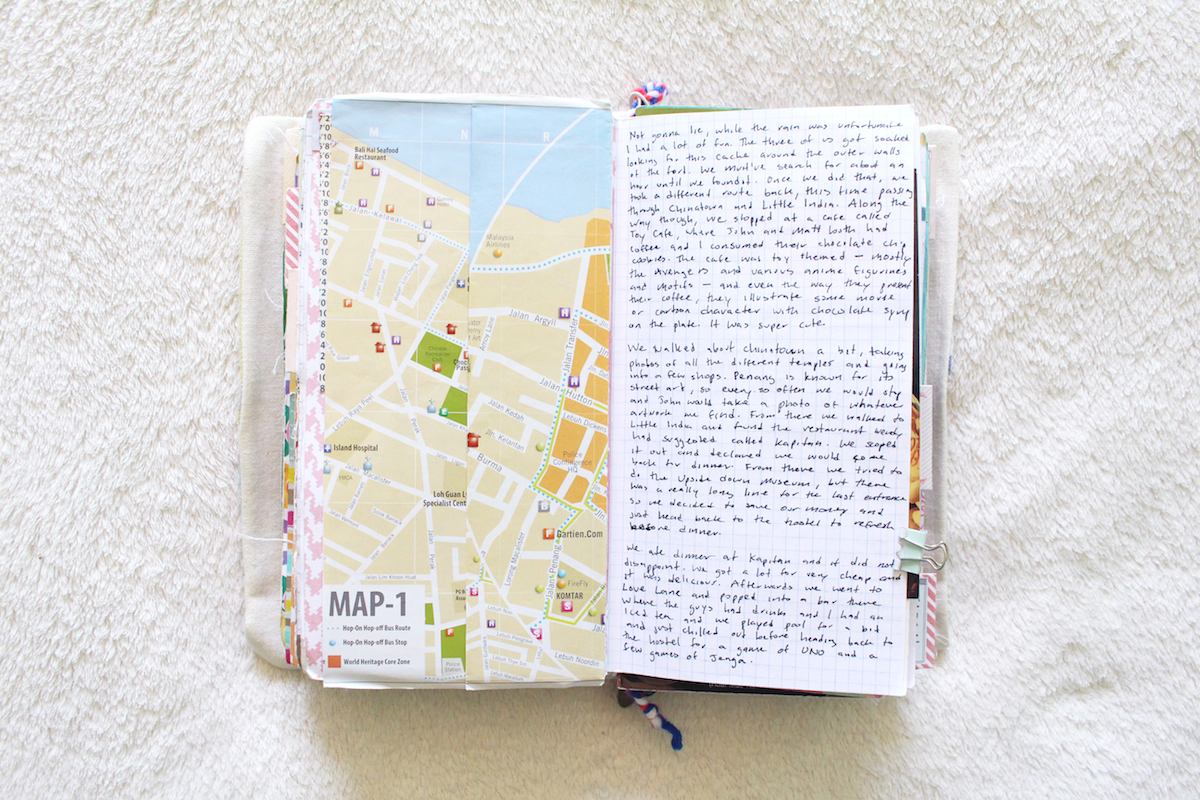 M
N
R
Bali Hai Seafood
Restaurant
Jalan Kelawai
Malaysia
Airlines
Jalan Argyll
Jalan Transfer
Jalan
Hutton
Lebuh Dickens
Jalan Kedah
Jln. Kelantan
Burma
Police
HQ
Island Hospital
Jalan Macalister
YMCA
Loh Guan L
Specialist Cent
Lorong Macalister
Jalan Penang
Gartien.Com
FireFly
KOMTAR
Jalan Perak
Jalan Lim Khoon Huat
Lebuh Noordin
Police
Station
MAP-1
Hop-On Hop-off Bus Route
Hop-On Hop-off Bus Stop
World Heritage Core Zone
Not gonna lie, while the rain was unfortunate
I had a lot of fun. The three of us got soaked
looking for this cache around the outer walls
of the fort. We must've search for about an
hour until we founded. Once we did that, we
took a different route back, this time passing
through Chinatown and Little India. Along the
way though, we stopped at a cafe called
Toy Cafe, where John and Matt both had
coffee and I consumed their chocolate chip
cookies. The cafe was toy themed – mostly
the Avengers and various anime figurines
and motifs – and even the way they present
their coffee, they illustrate some movie
or cartoon character with chocolate syrup
on the plate. It was super cute.
We walked about Chinatown a bit, taking
photos of all the different temples and going
into a few shops. Penang is known for its
street art, so every so often we would stop
and John would take a photo of whatever
artwork we find. From there we walked to
Little India and found the restaurant Wendy
had suggested called Kapitan. We scoped
it out and declared we would come
back for dinner. From there we tried to
do the Upside down Museum, but there
was a really long line for the last entrance
so we decided to save our money and
just head back to the hostel to refresh
before dinner.
We ate dinner at Kapitan and it did not
disappoint. We got a lot for very cheap and
it was delicious. Afterwards we went to
Love Lane and popped into a bar there
where the guys had drinks and I had an
iced tea and we played pool for a bid
and just chilled out before heading back to
the hostel for a game of UNO and a
few games of Jenga.